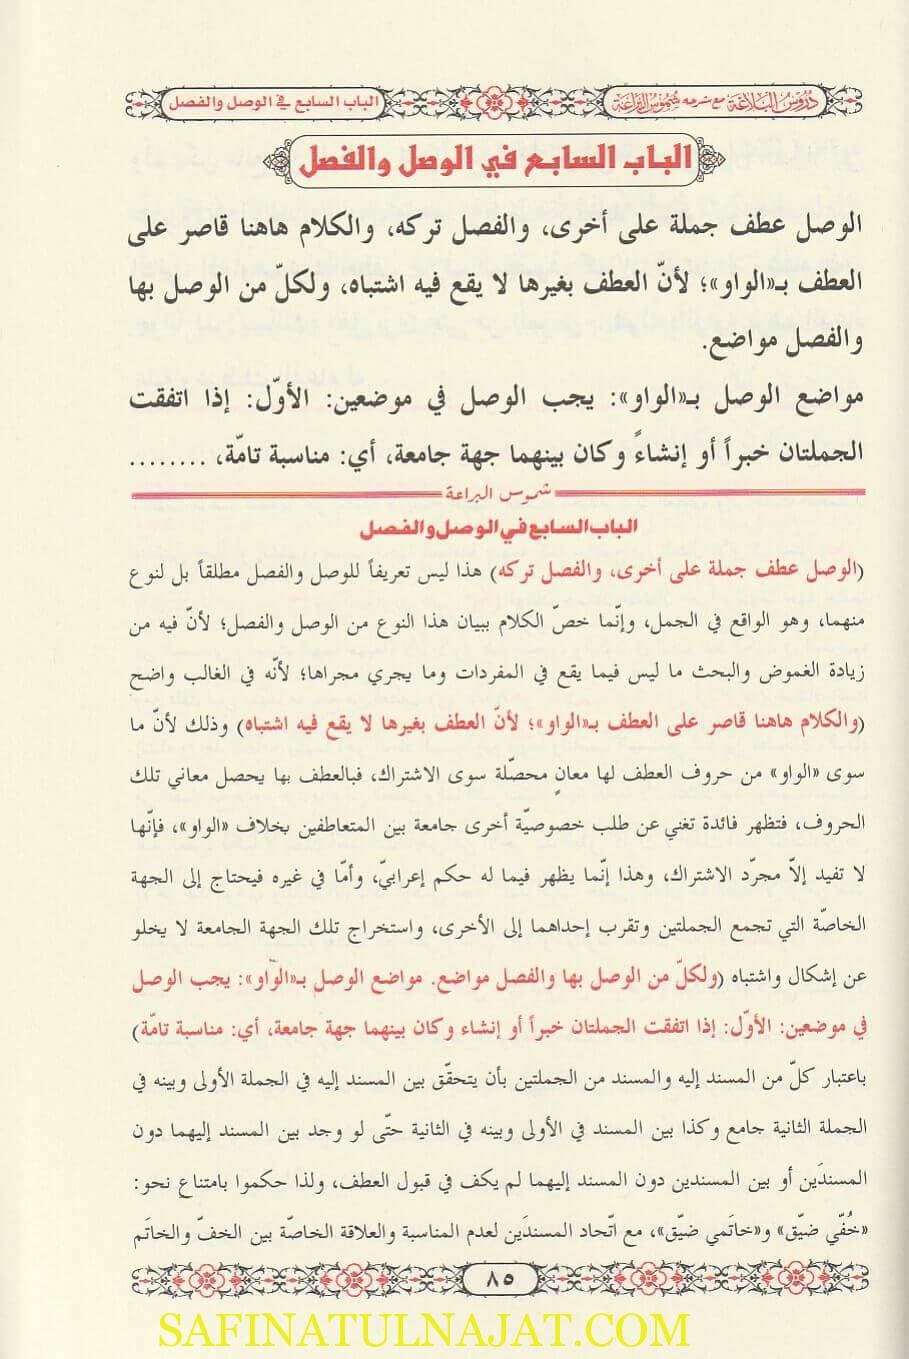 دروس البلاغة مع شرحه شموس البراعة
الباب السابع في الوصل والفصل
الباب السابع في الوصل والفصل
الوصل عطف جملة على أخرى، والفصل تركه، والكلام هاهنا قاصر على
العطف بـ«الواو»؛ لأنّ العطف بغيرها لا يقع فيه اشتباه، ولكلّ من الوصل بها
والفصل مواضع.
مواضع الوصل بـ«الواو»: يجب الوصل في موضعين: الأوّل: إذا اتفقت
الجملتان خبراً أو إنشاءً وكان بينهما جهة جامعة، أي: مناسبة تامّة، ........
شموس البراعة
الباب السابع في الوصل والفصل
(الوصل عطف جملة على أخرى، والفصل تركه) هذا ليس تعريفاً للوصل والفصل مطلقاً بل لنوع
منهما، وهو الواقع في الجمل، وإنّما خصّ الكلام ببيان هذا النوع من الوصل والفصل؛ لأنّ فيه من
زيادة الغموض والبحث ما ليس فيما يقع في المفردات وما يجري مجراها؛ لأنّه في الغالب واضح
(والكلام هاهنا قاصر على العطف بـ«الواو»؛ لأنّ العطف بغيرها لا يقع فيه اشتباه) وذلك لأنّ ما
سوى «الواو» من حروف العطف لها معانٍ محصّلة سوى الاشتراك، فبالعطف بها يحصل معاني تلك
الحروف، فتظهر فائدة تغني عن طلب خصوصيّة أخرى جامعة بين المتعاطفين بخلاف «الواو»، فإنّها
لا تفيد إلاّ مجرّد الاشتراك، وهذا إنّما يظهر فيما له حكم إعرابيّ، وأمّا في غيره فيحتاج إلى الجهة
الخاصّة التي تجمع الجملتين وتقرب إحداهما إلى الأخرى، واستخراج تلك الجهة الجامعة لا يخلو
عن إشكال واشتباه (ولكلّ من الوصل بها والفصل مواضع. مواضع الوصل بـ«الواو»: يجب الوصل
في موضعين: الأوّل: إذا اتفقت الجملتان خبراً أو إنشاء وكان بينهما جهة جامعة، أي: مناسبة تامّة)
باعتبار كلّ من المسند إليه والمسند من الجملتين بأن يتحقّق بين المسند إليه في الجملة الأولى وبينه في
الجملة الثانية جامع وكذا بين المسند في الأولى وبينه في الثانية حتّى لو وجد بين المسند إليهما دون
المسندَين أو بين المسندين دون المسند إليهما لم يكف في قبول العطف، ولذا حكموا بامتناع نحو:
«خُفّي ضيّق» و«خاتَمي ضيّق»، مع اتّحاد المسندَين لعدم المناسبة والعلاقة الخاصّة بين الخفّ والخاتَم
٨٥
SAFINATULNAJAT.COM